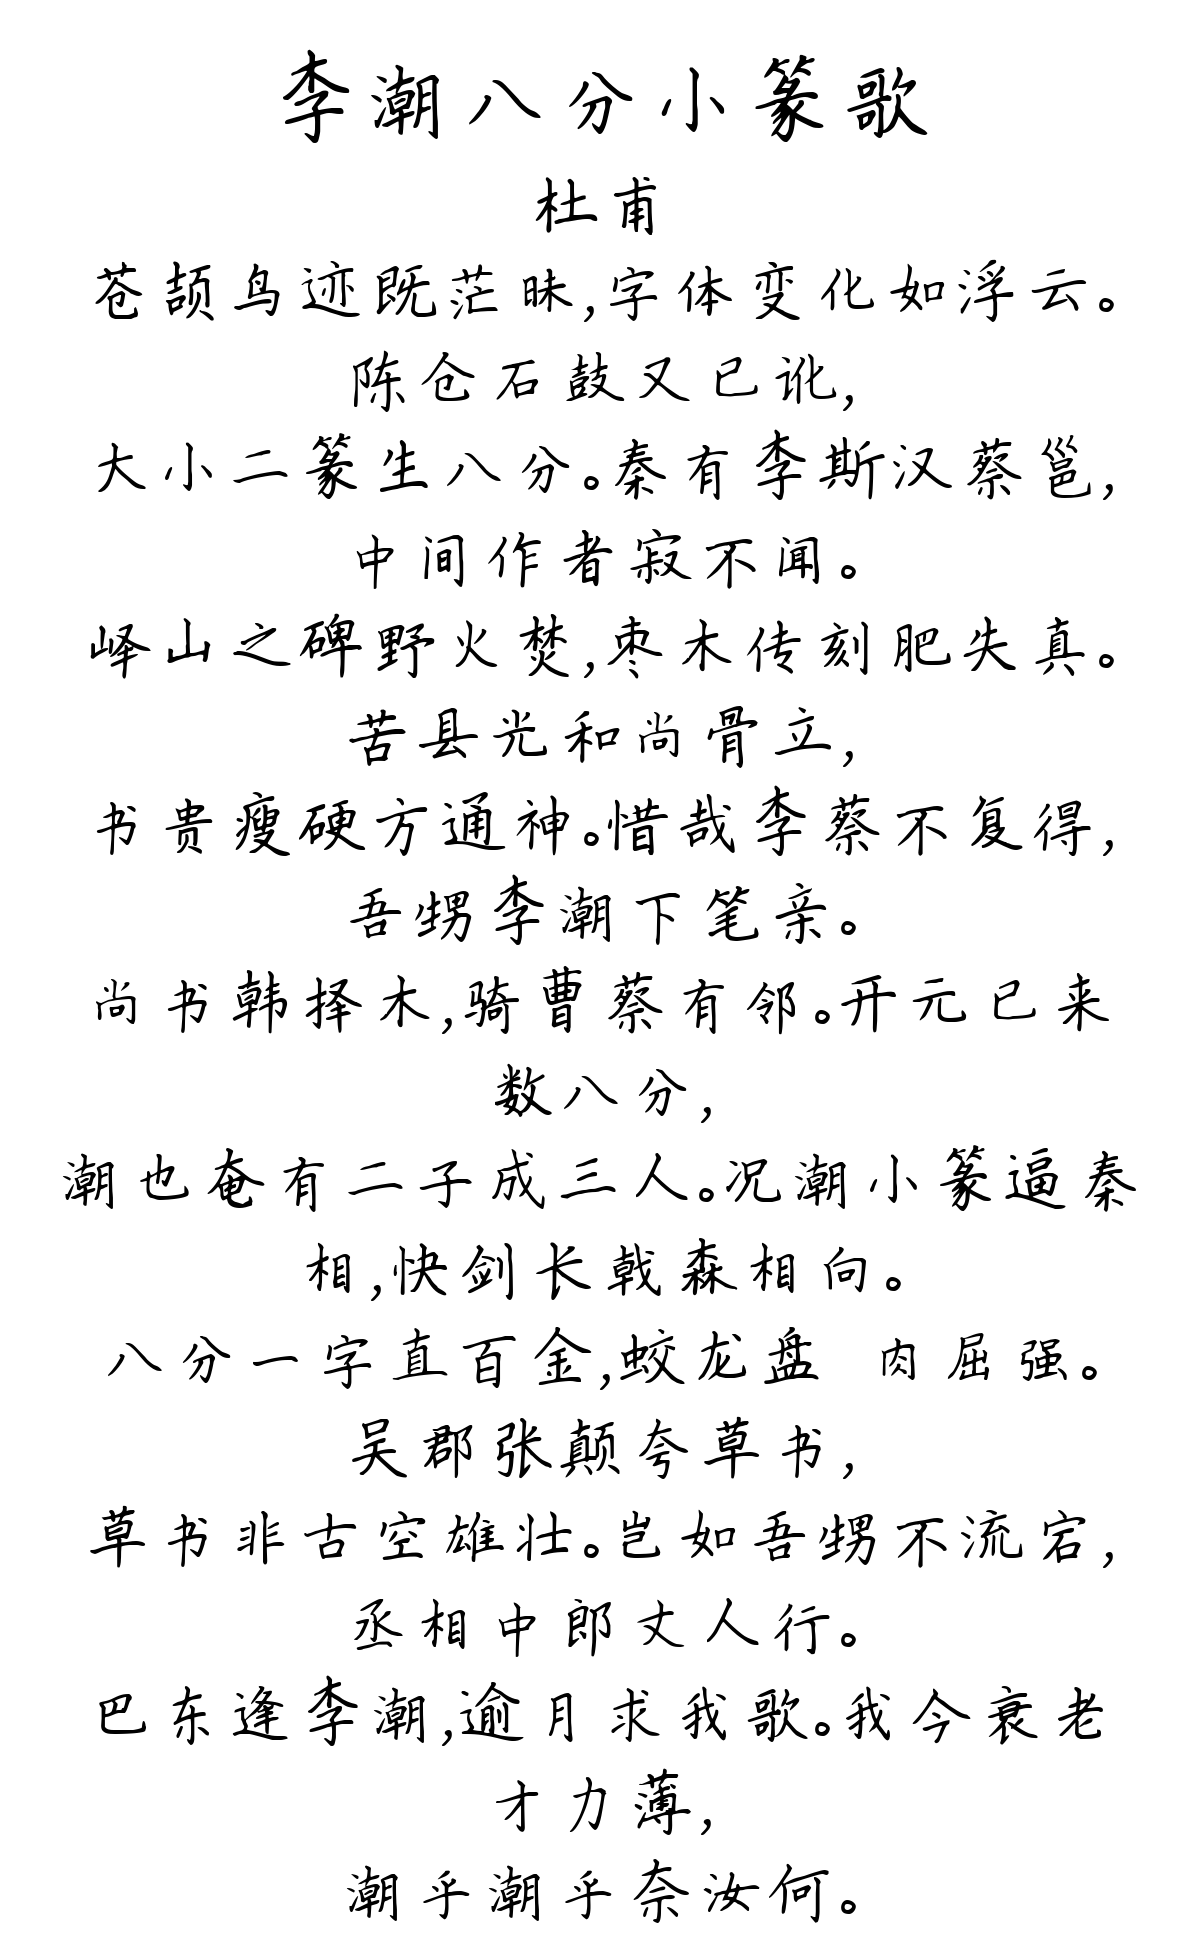 李潮八分小篆歌
杜甫
苍颉鸟迹既茫昧,字体变化如浮云。
陈仓石鼓又已讹,
大小二篆生八分。秦有李斯汉蔡邕,
中间作者寂不闻。
峄山之碑野火焚,枣木传刻肥失真。
苦县光和尚骨立,
书贵瘦硬方通神。惜哉李蔡不复得,
吾甥李潮下笔亲。
尚书韩择木,骑曹蔡有邻。开元已来
数八分,
潮也奄有二子成三人。况潮小篆逼秦
相,快剑长戟森相向。
八分一字直百金,蛟龙盘 肉屈强。
吴郡张颠夸草书,
草书非古空雄壮。岂如吾甥不流宕,
丞相中郎丈人行。
巴东逢李潮,逾月求我歌。我今衰老
才力薄,
潮乎潮乎奈汝何。